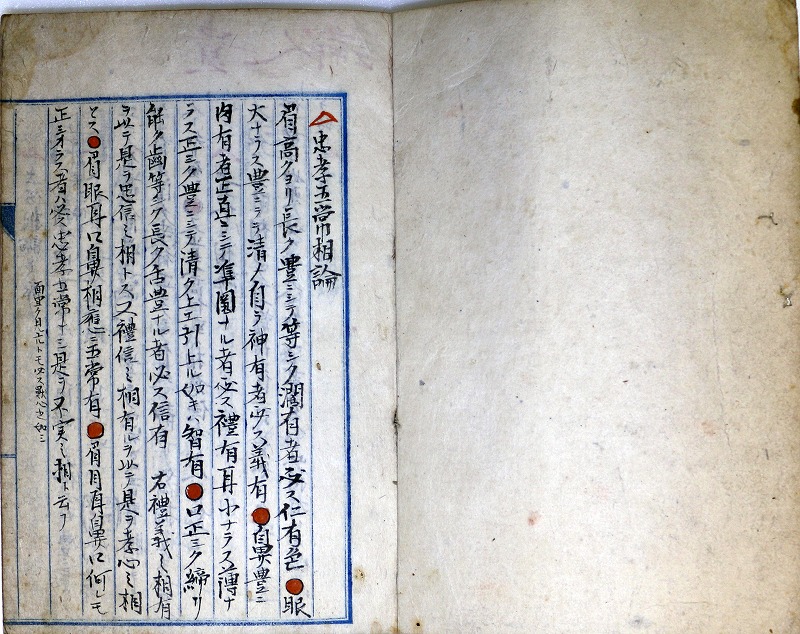 忠孝五常相論
眉高クヨリ長ク豊ニシテ等シク潤有者必ス仁有色●眼
大ナラス豊ニシテ清メ自ラ神有者必ス義有●鼻豊ニ
肉有者正直ニシテ準圓ナル者必ス禮有耳小ナラス薄ナ
ラス正シク豊ニシテ清ク上エ引上ル如キハ智有●口正シク締リ
能ク歯等シク長ク舌豊ナル者必ス信有 右禮義之相有
ヲ以テ是ヲ忠信之相トス又禮信之相有ルヲ以テ是ヲ孝心之相
トス●眉眼耳口鼻相應ニ五常有●眉目耳鼻口何レモ
正シカラス者ハ必忠孝五常ナシ是ヲ不実之相ト云フ